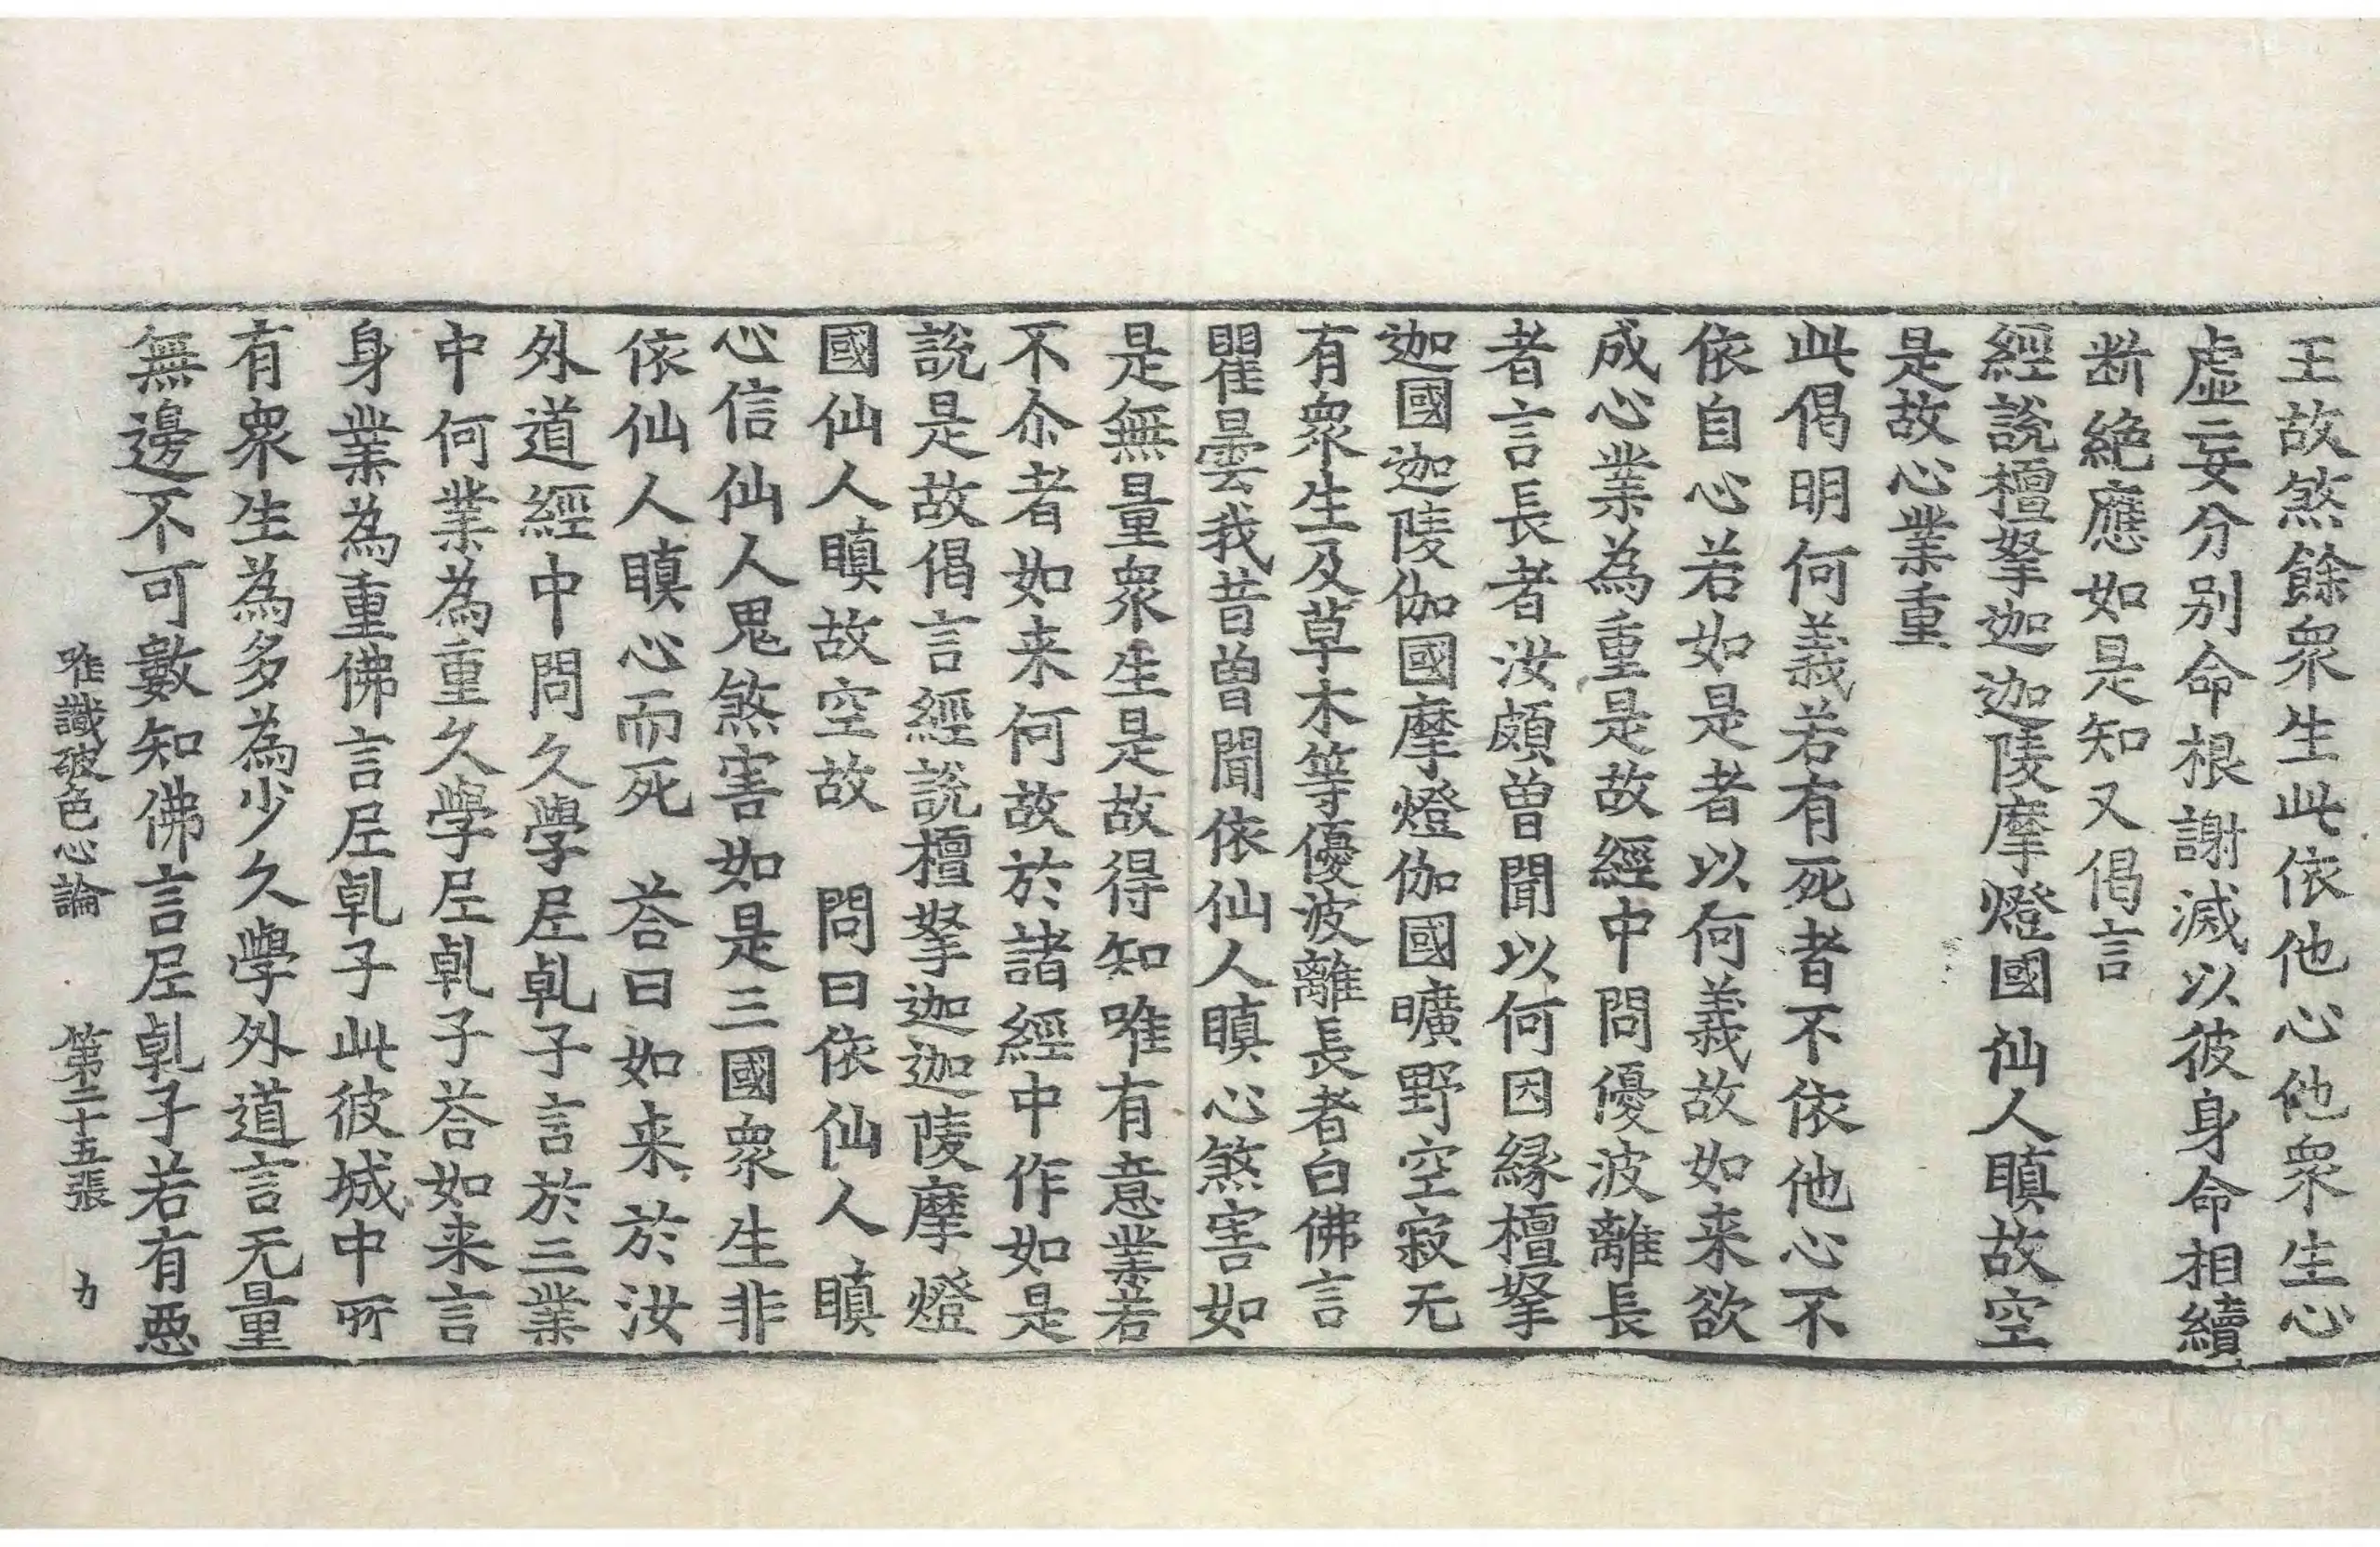 王故煞餘衆生此依他心他衆生心
虛妄分別命根謝滅以彼身命相續
断絕應如是知又偈言
經說檀拏迦迦陵摩燈國仙人瞋故空
是故心業重
此偈明何義若有死者不依他心不
依自心若如是者以何義故如来欲
成心業為重是故經中問優波離長
者言長者汝頗曾聞以何因緣檀拏
迦國迦陵伽國摩燈伽國曠野空寂无
有衆生及草木等優波離長者白佛言
瞿曇我昔曾聞依仙人瞋心煞害如
是無量衆生是故得知唯有意業若
不尒者如来何故於諸經中作如是
說是故偈言經說檀拏迦迦陵摩燈
國仙人瞋故空故　問曰依仙人瞋
心信仙人鬼煞害如是三國衆生非
依仙人瞋心而死　荅曰如来於汝
外道經中問久學尼乹子言於三業
中何業為重久學尼乹子荅如来言
身業為重佛言尼乹子此彼城中所
有衆生為多為少久學外道言无量
無邊不可數知佛言尼乹子若有惡
唯識破色心論　第二十五張　力